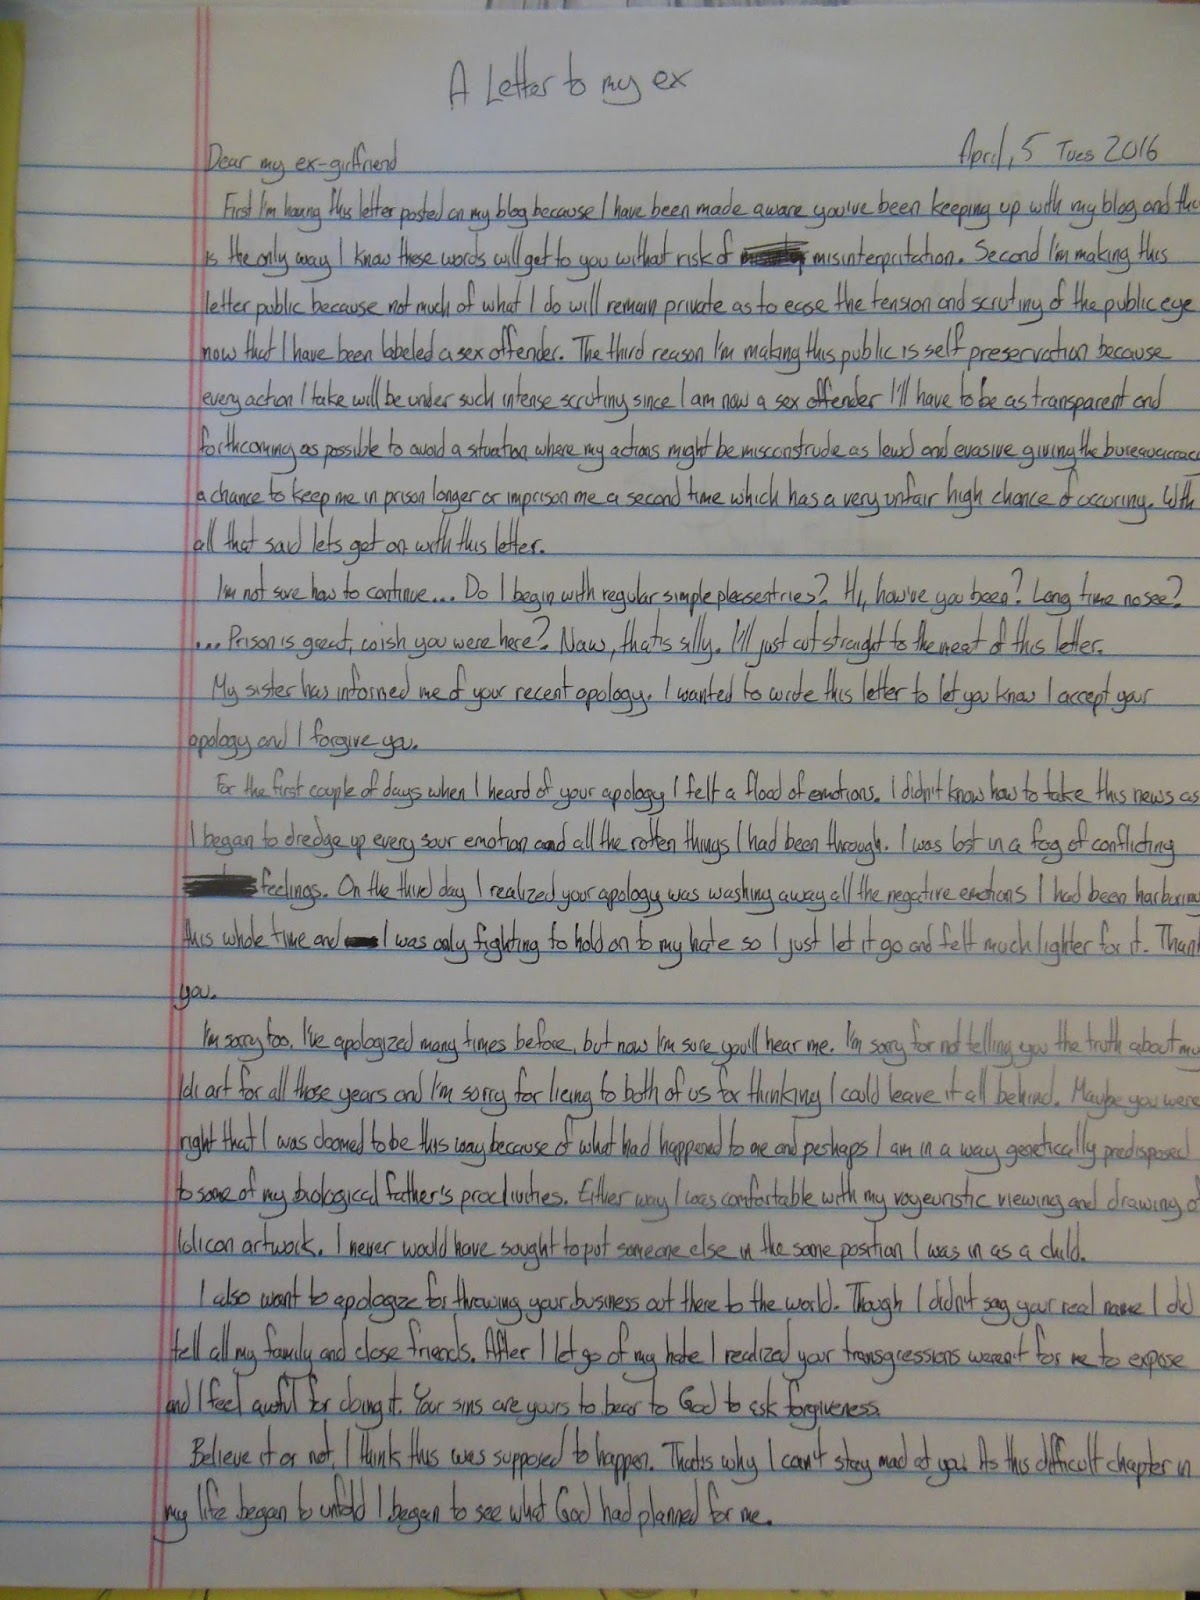 A Letter to my ex
Dear my ex-girlfriend April, 5 Tues 2016
First I'm having this letter posted on my blog because I have been made aware you've been keeping up with my blog and
is the only way I know these words will get to you without risk of misinterpritation. Second I'm making this
letter public because not much of what I do will remain private as to ease the tension and scrutiny of the public eye
now that I have been labeled a sex offender. The third reason I'm making this public is self preservation because
every action I take will be under such intense scrutiny since I am now a sex offender I'll have to be as transparent and
forthcoming as possible to avoid a situation where my actions might be misconstrude as lewd and evasive giving the
a chance to keep me in prison longer or imprison me a second time which has a very unfair high chance of occuring. With
all that said lets get on with this letter.
I'm not sure how to continue... Do I begin with regular simple pleasentries? Hi, how've you been? Long time no see?
... Prison is great, wish you were here? Naw, that's silly. I'll just cut straight to the meat of this letter.
My sister has informed me of your recent apology. I wanted to write this letter to let you know I accept your
apology and I forgive you.
For the first couple of days when I heard of your apology I felt a flood of emotions. I didn't know how to take this news as
I began to dredge up every sour emotion and all the rotten things I had been through. I was lost in a fog of conflicting
feelings. On the third day I realized your apology was washing away all the negative emotions I had been harboring
this whole time and I was only fighting to hold on to my hate so I just let it go and felt much lighter for it. Thank
you.
I'm sorry too. I've apologized many times before, but now I'm sure you'll hear me. I'm sorry for not telling you the truth about my
loli art for all those years and I'm sorry for lieing to both of us for thinking I could leave it all behind. Maybe you were
right that I was doomed to be this way because of what had happened to me and perhaps I am in a way genetically predisposed
to some of my biological father's proclivities. Either way I was comfortable with my voyeuristic viewing and drawing of
lolicon artwork. I never would have sought to put someone else in the same position I was in as a child.
I also want to apologize for throwing your business out there to the world. Though I didn't say your real name I did
tell all my family and close friends. After I let go of my hate I realized your transgressions weren't for me to expose
and I feel awful for doing it. Your sins are yours to bear to God to ask forgiveness.
Believe it or not, I think this was supposed to happen. That's why I can't stay mad at you. As this difficult chapter in
my life began to unfold I began to see what God had planned for me.